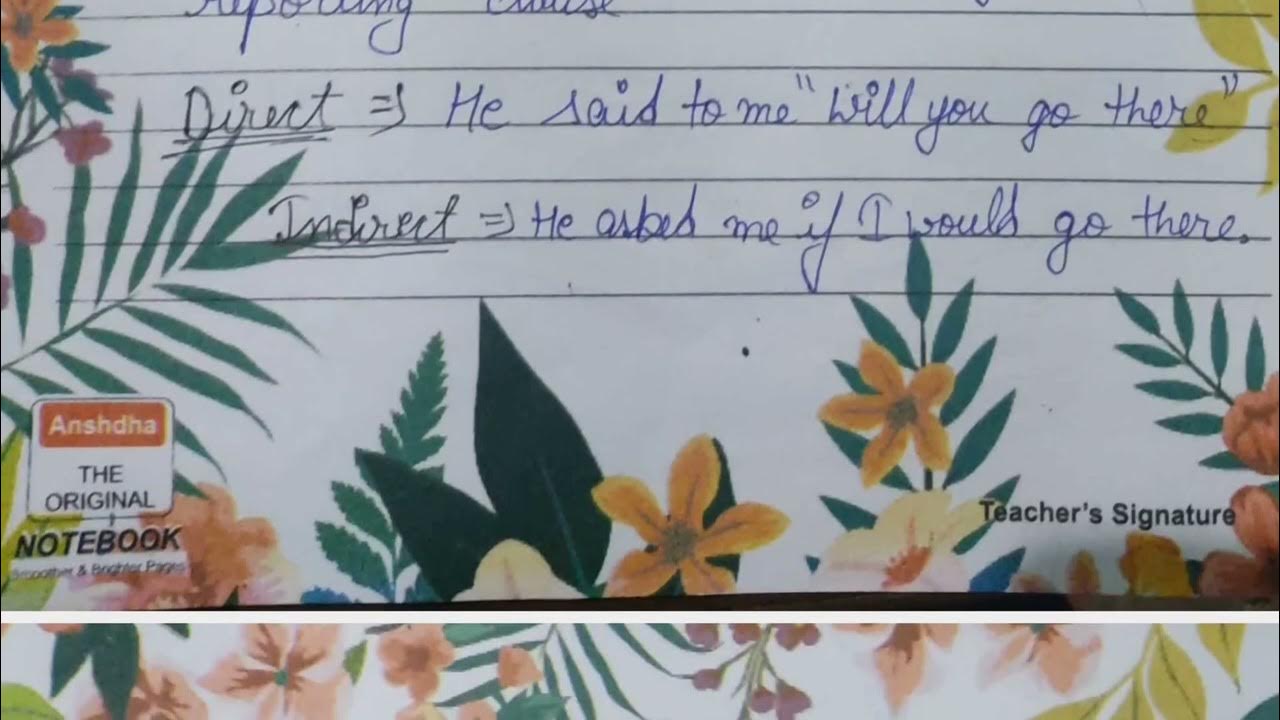 reporting clause
Direct ⇒ He said to me "Will you go there"
Indirect ⇒ He asked me if I would go there.
Anshdha
THE
ORIGINAL
NOTEBOOK
Smoother & Brighter Pages
Teacher's Signature